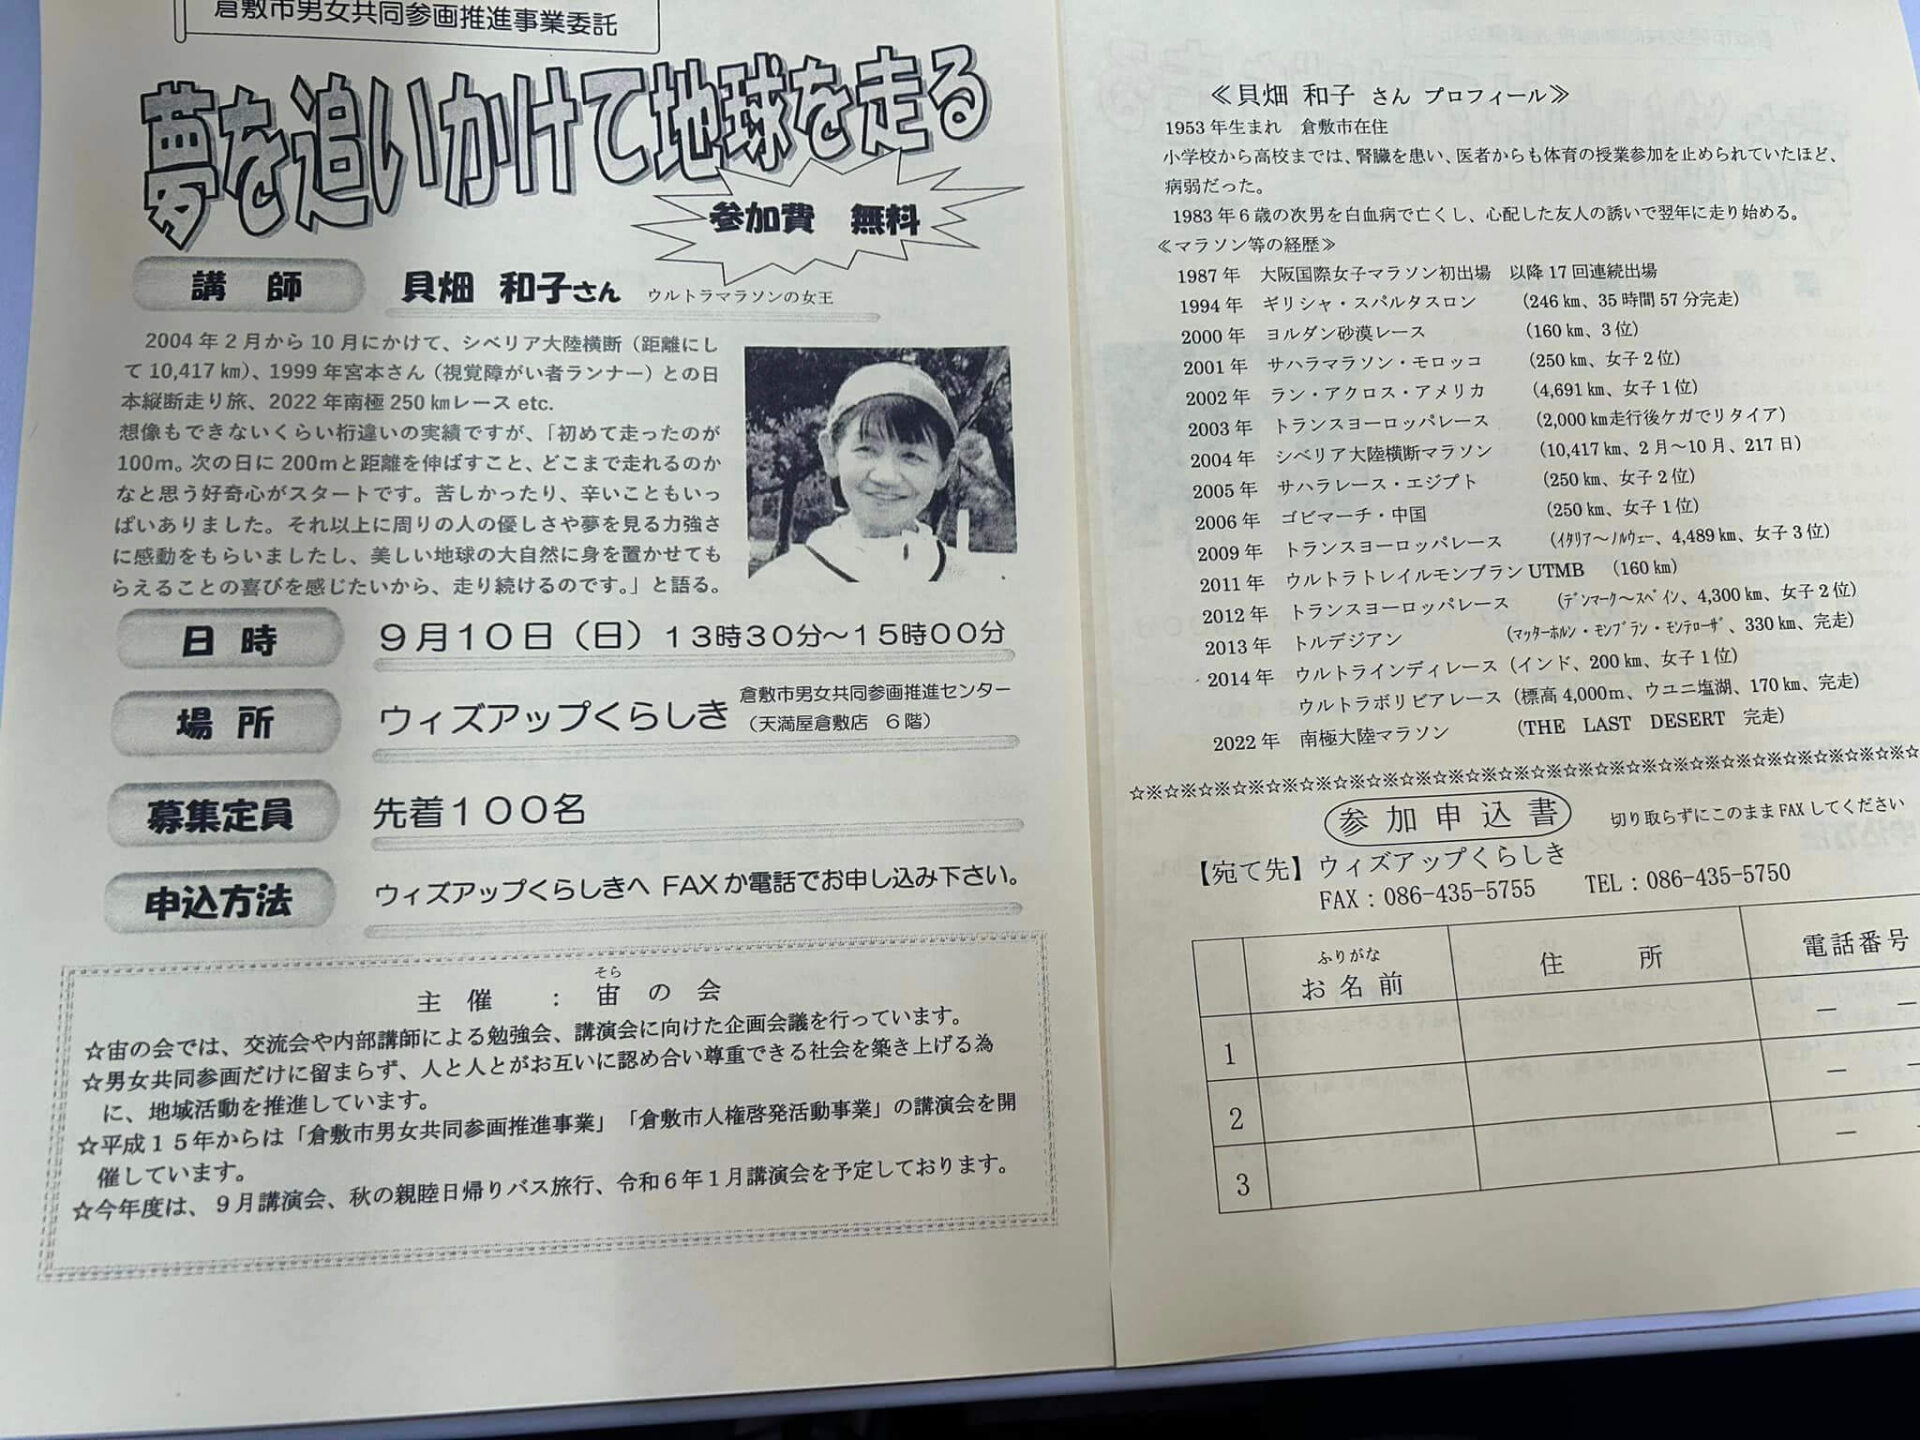 倉敷市男女共同参画推進事業委託
夢を追いかけて地球を走る
参加費 無料
講 師 貝畑 和子さん ウルトラマラソンの女王
2004年2月から10月にかけて、シベリア大陸横断（距離にし
て10,417㎞）、1999年宮本さん（視覚障がい者ランナー）との日
本縦断走り旅、2022年南極250㎞レースetc.
想像もできないくらい桁違いの実績ですが、「初めて走ったのが
100m。次の日に200mと距離を伸ばすこと、どこまで走れるのか
なと思う好奇心がスタートです。苦しかったり、辛いこともいっ
ぱいありました。それ以上に周りの人の優しさや夢を見る力強さ
に感動をもらいましたし、美しい地球の大自然に身を置かせても
らえることの喜びを感じたいから、走り続けるのです。」と語る。
日 時 9月10日（日）13時30分～15時00分
場 所 ウィズアップくらしき 倉敷市男女共同参画推進センター
（天満屋倉敷店 6階）
募集定員 先着100名
申込方法 ウィズアップくらしきへ FAXか電話でお申し込み下さい。
そら
主 催 ： 宙 の 会
☆宙の会では、交流会や内部講師による勉強会、講演会に向けた企画会議を行っています。
☆男女共同参画だけに留まらず、人と人とがお互いに認め合い尊重できる社会を築き上げる為
に、地域活動を推進しています。
☆平成15年からは「倉敷市男女共同参画推進事業」「倉敷市人権啓発活動事業」の講演会を開
催しています。
☆今年度は、9月講演会、秋の親睦日帰りバス旅行、令和6年1月講演会を予定しております。
≪貝畑 和子 さん プロフィール≫
1953年生まれ 倉敷市在住
小学校から高校までは、腎臓を患い、医者からも体育の授業参加を止められていたほど、
病弱だった。
1983年6歳の次男を白血病で亡くし、心配した友人の誘いで翌年に走り始める。
≪マラソン等の経歴≫
1987年 大阪国際女子マラソン初出場 以降17回連続出場
1994年 ギリシャ・スパルタスロン （246㎞、35時間57分完走）
2000年 ヨルダン砂漠レース （160㎞、3位）
2001年 サハラマラソン・モロッコ （250㎞、女子2位）
2002年 ラン・アクロス・アメリカ （4,691㎞、女子1位）
2003年 トランスヨーロッパレース （2,000㎞走行後ケガでリタイア）
2004年 シベリア大陸横断マラソン （10,417㎞、2月～10月、217日）
2005年 サハラレース・エジプト （250㎞、女子2位）
2006年 ゴビマーチ・中国 （250㎞、女子1位）
2009年 トランスヨーロッパレース （ｲﾀﾘｱ～ﾉﾙｳｪｰ、4,489㎞、女子3位）
2011年 ウルトラトレイルモンブランUTMB （160㎞）
2012年 トランスヨーロッパレース （ﾃﾞﾝﾏｰｸ～ｽﾍﾟｲﾝ、4,300㎞、女子2位）
2013年 トルデジアン （ﾏｯﾀｰﾎﾙﾝ・ﾓﾝﾌﾞﾗﾝ・ﾓﾝﾃﾛｰｻﾞ、330㎞、完走）
2014年 ウルトラインディレース（インド、200㎞、女子1位）
ウルトラボリビアレース（標高4,000m、ウユニ塩湖、170㎞、完走）
2022年 南極大陸マラソン （THE LAST DESERT 完走）
☆※☆※☆※☆※☆※☆※☆※☆※☆※☆※☆※☆※☆※☆※☆※☆※☆※☆※☆※☆※☆※☆※☆
参加申込書 切り取らずにこのままFAXしてください
【宛て先】ウィズアップくらしき
FAX：086-435-5755 TEL：086-435-5750
ふりがな
お名前 住 所 電話番号
1 － －
2 － －
3 － －